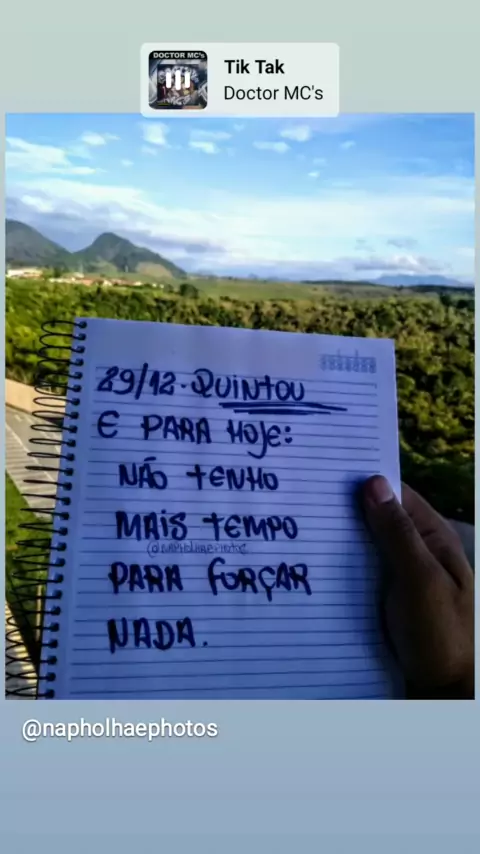 DOCTOR MC's
Tik Tak
Doctor MC's
29/12. QUINTOU
E PARA HOJE:
NÃO TENHO
MAIS TEMPO
@NAPHOLHAEPHOTOS
PARA FORÇAR
NADA.
@napholhaephotos